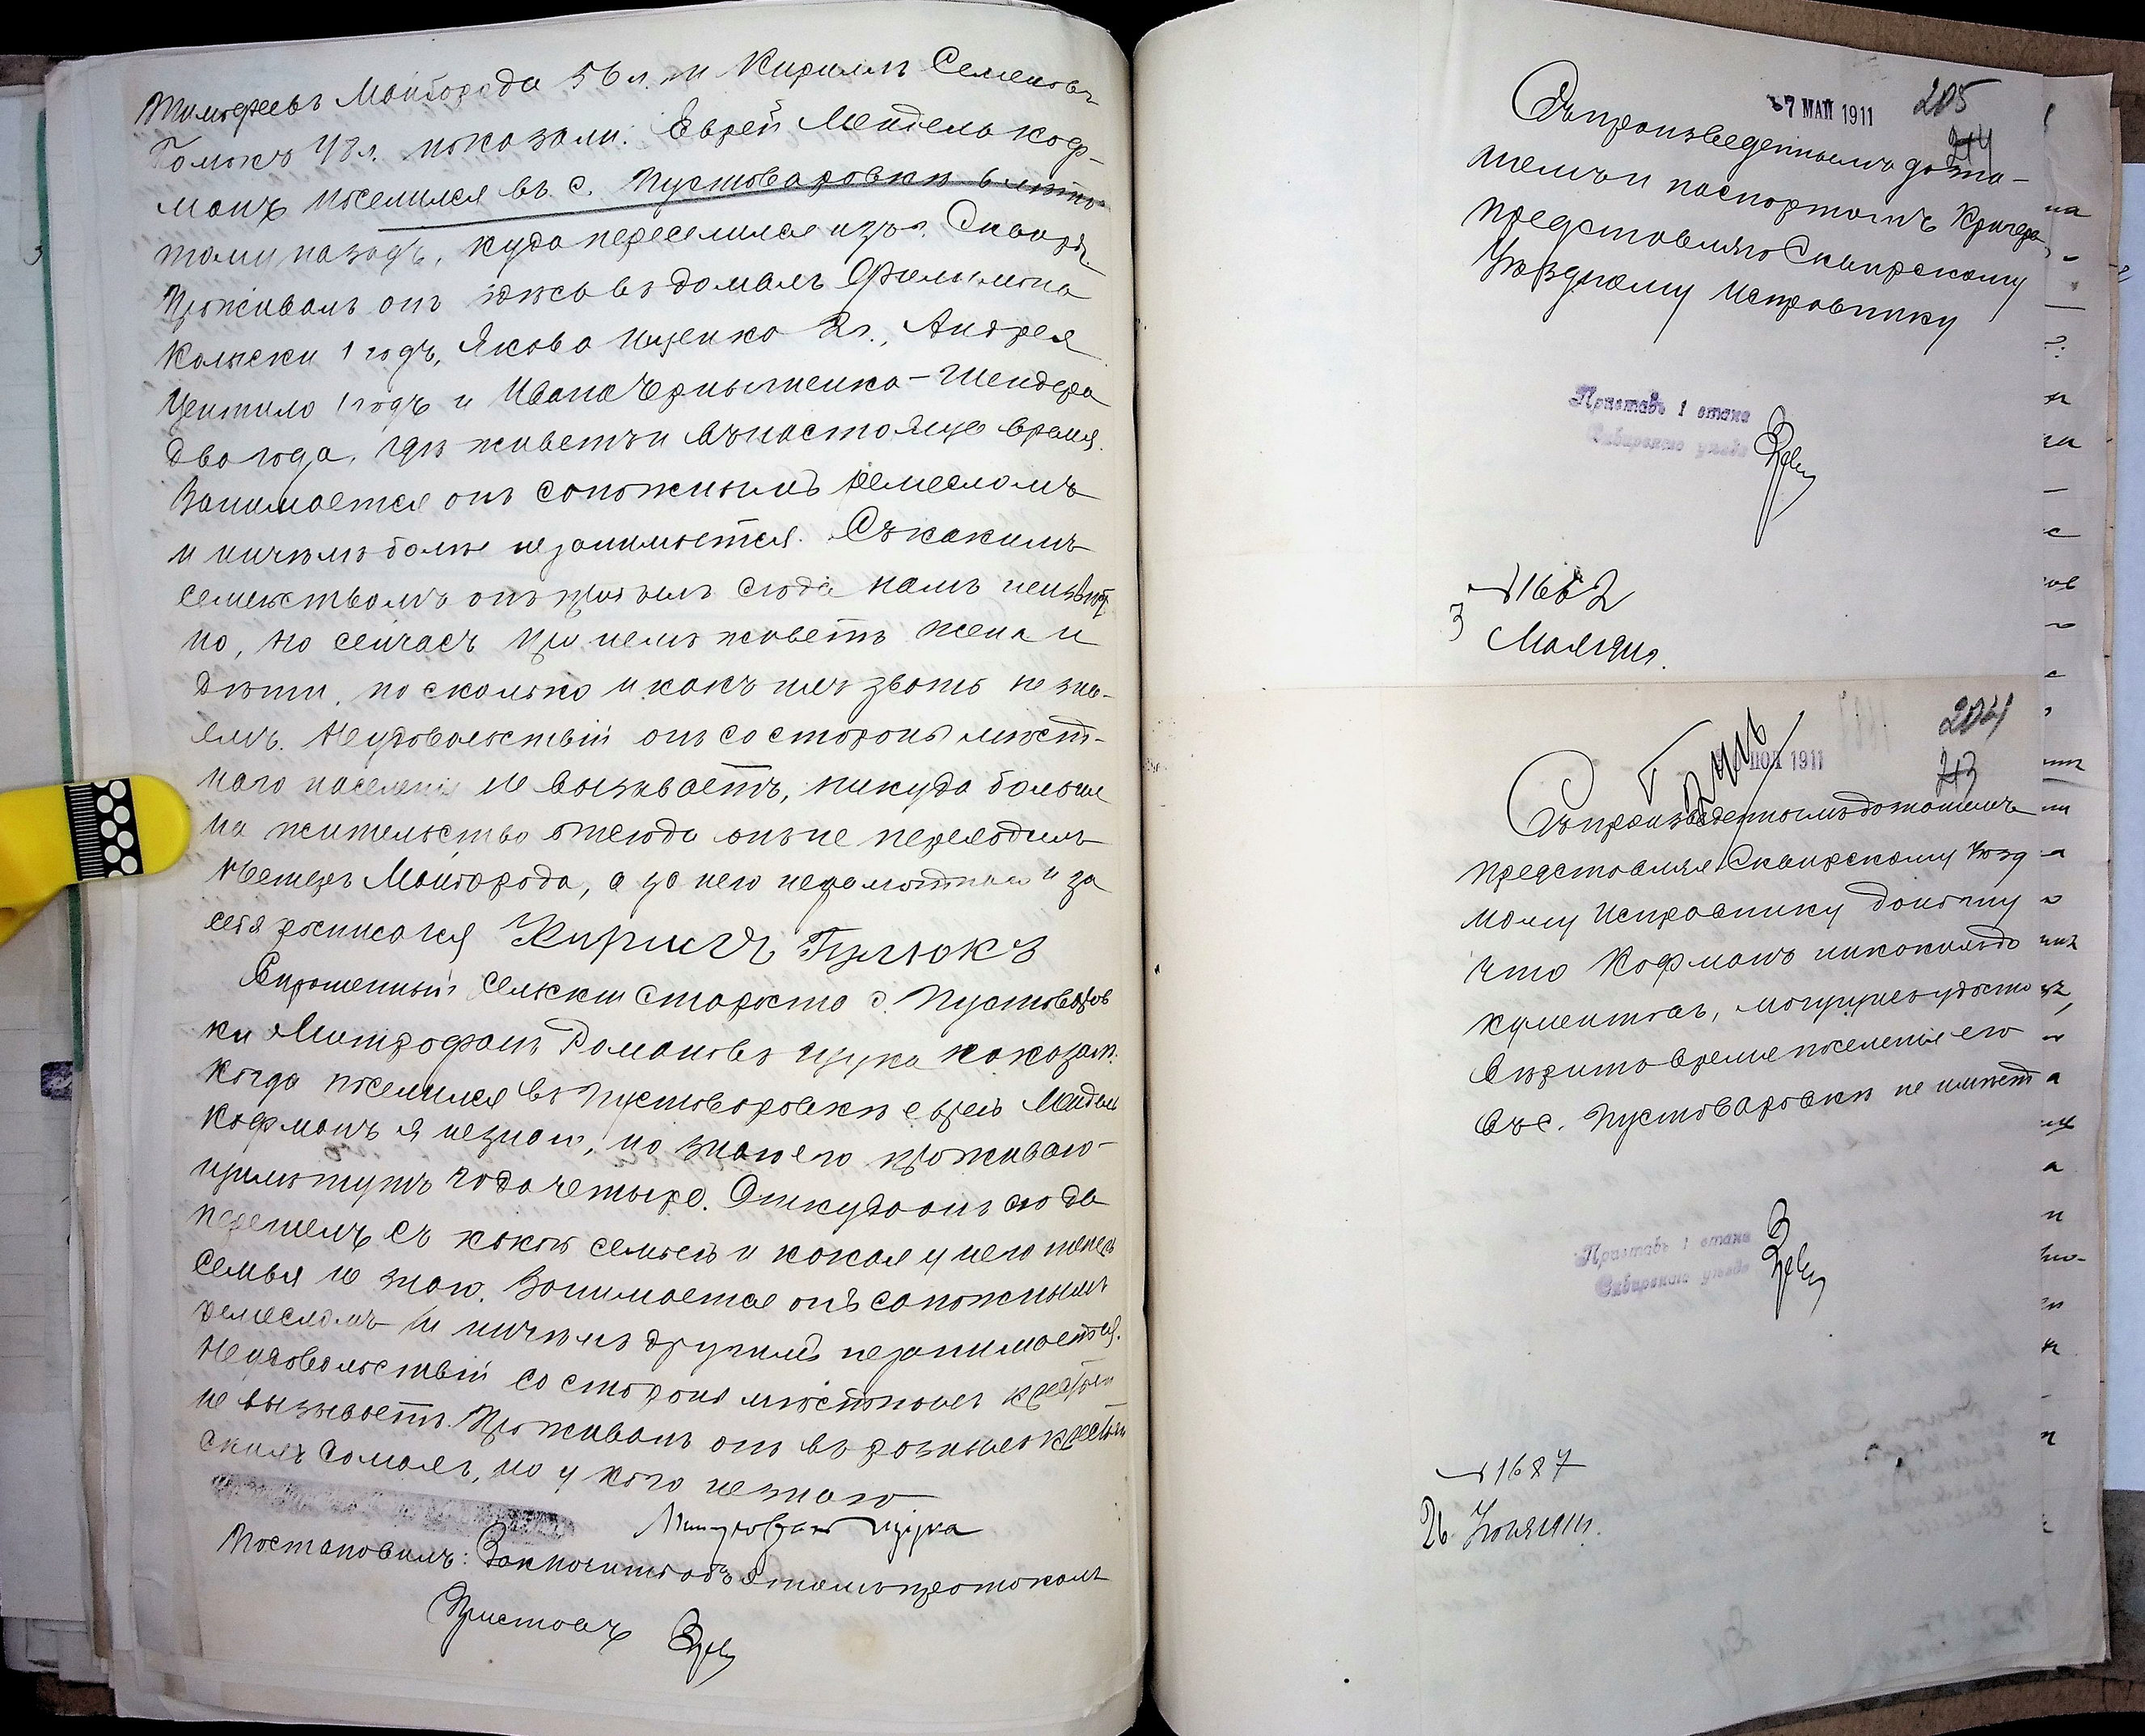 Тимофеевъ Майборода 56 л. и Кириллъ Семеновъ
48 л. показали: Еврей Мендель Коф-
манъ поселился въ с. Пустоваровкѣ 6 лѣтъ
тому назадъ, куда переселился изъ г. Сквиры
Проживалъ онъ здѣсь въ домахъ Филимона
1 годъ, Якова Ищенко 2 г., Андрея
1 годъ и Ивана Чернышенка-Шендера
два года, гдѣ живетъ и въ настоящее время.
Занимается онъ сапожнымъ ремесломъ
и ничѣмъ болѣе не занимается. Съ какимъ
семействомъ онъ прибылъ сюда намъ неизвѣст
но, но сейчасъ при немъ живетъ жена и
дѣти, но сколько и какъ ихъ зватъ не зна-
емъ. Неудовольствій онъ со стороны мѣст-
наго населенія не вызываетъ, никуда больше
на жительство отсюда онъ не переходилъ
Майборода, а за него неграмотнаго и за
себя росписался Кирилъ
Спрошенный Сельскій Староста с. Пустоваров
ки Митрофанъ Романовъ Щука показалъ:
Когда поселился въ Пустоваровкѣ еврей Мендель
Кофманъ я не знаю, но знаю его проживаю-
щимъ тутъ года четыре. Откуда онъ сюда
перешелъ съ какой семьей и какая у него теперь
семья не знаю. Занимается онъ сапожнымъ
ремесломъ и ничѣмъ другимъ не занимается.
Неудовольствій со стороны мѣстныхъ крестьян
не вызываетъ. Проживалъ онъ въ разныхъ крестьян
скихъ домахъ, но у кого не знаю
Митрофанъ Щука
Постановилъ: Заключить объ этомъ протоколъ
Приставъ
27 МАЙ 1911 205
214
Съ произведеннымъ дозна-
ніемъ и паспортомъ
представляю Сквирскому
Уѣздному Исправнику
Приставъ 1 стана
Сквирскаго уѣзда
№ 1662
3
Мая 911 г.
ІЮН 1911 204
213
Съ произведеннымъ дознаніемъ
представляя Сквирскому Уѣзд
ному Исправнику доношу
что Кофманъ никакихъ до
кументовъ, могущихъ удосто
вѣрить время поселенія его
въ с. Пустоваровкѣ не имѣетъ
Приставъ 1 стана
Сквирскаго уѣзда
№ 1687
26 Іюня 1911 г.